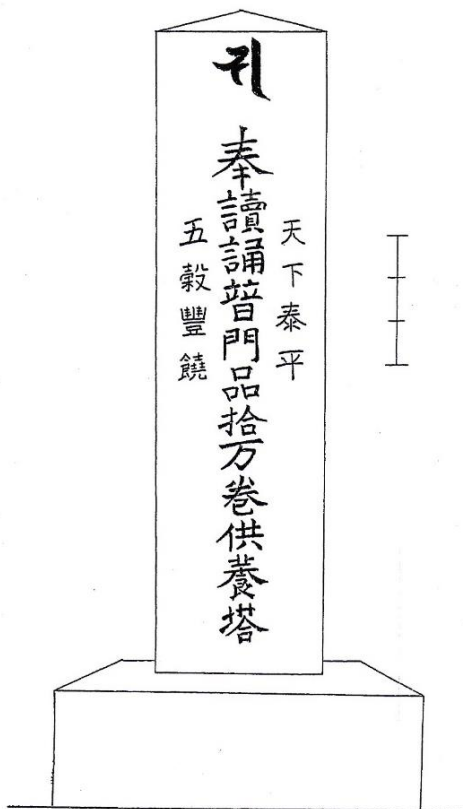 天下泰平
奉讀誦普門品拾万卷供養塔
五穀豐饒